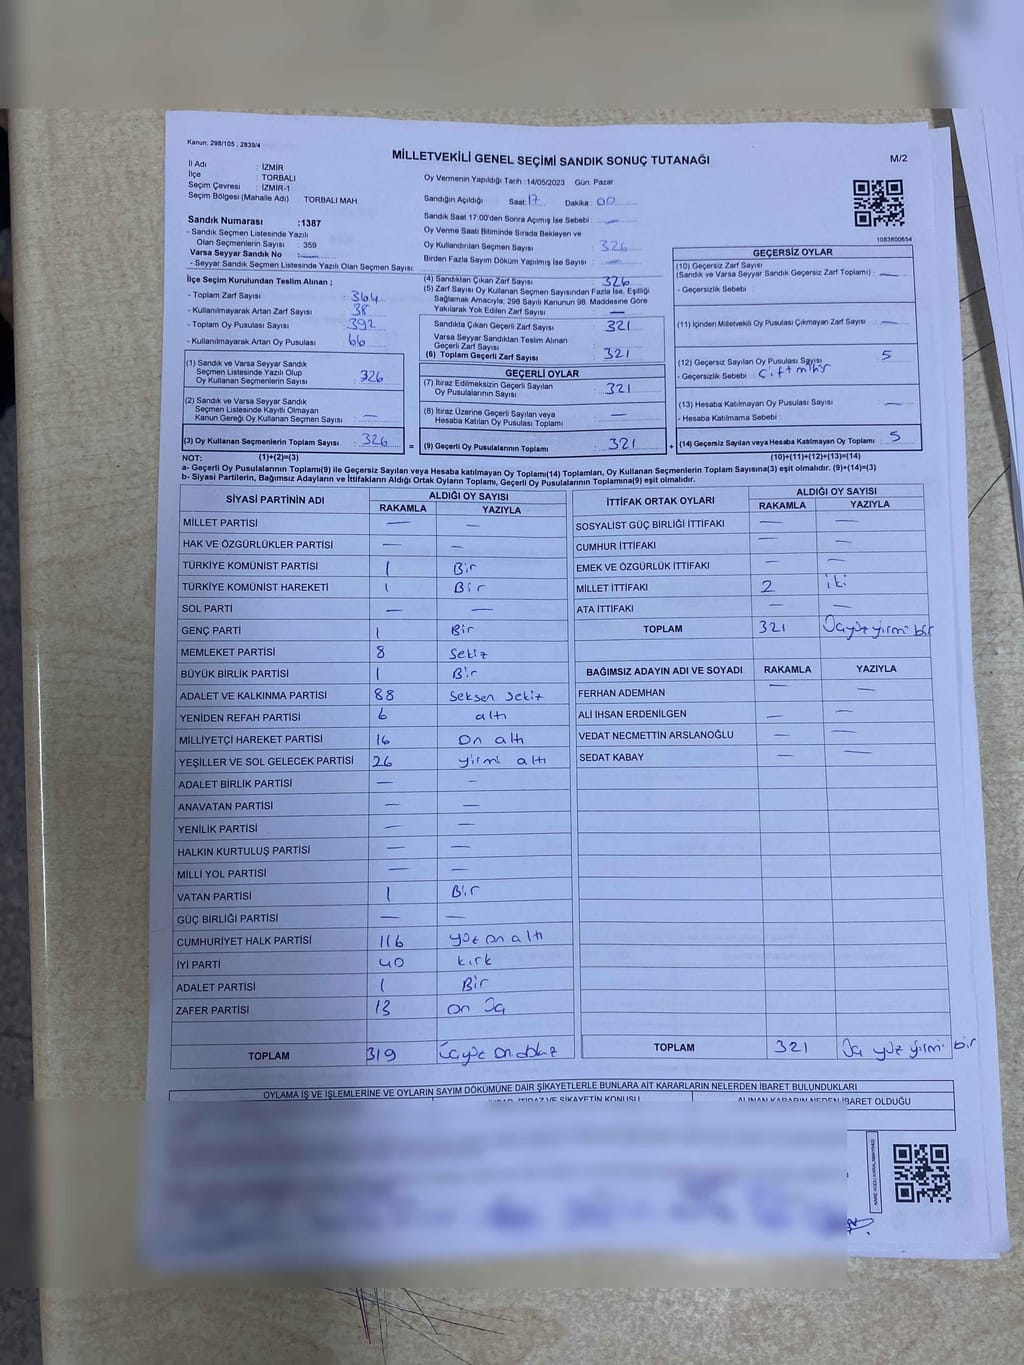 Kanun; 298/105 ; 2839/4
MİLLETVEKİLİ GENEL SEÇİMİ SANDIK SONUÇ TUTANAĞI
M/2
İl Adı : İZMİR
İlçe : TORBALI
Seçim Çevresi : İZMİR-1
Seçim Bölgesi (Mahalle Adı) TORBALI MAH.
Sandık Numarası :1387
- Sandık Seçmen Listesinde Yazılı
Olan Seçmenlerin Sayısı : 359
Varsa Seyyar Sandık No : —
- Seyyar Sandık Seçmen Listesinde Yazılı Olan Seçmen Sayısı:
Oy Vermenin Yapıldığı Tarih :14/05/2023 Gün: Pazar
Sandığın Açıldığı Saat: 17 Dakika : 00
Sandık Saat 17:00'den Sonra Açımış İse Sebebi : —
Oy Verme Saati Bitiminde Sırada Bekleyen ve
Oy Kullandırılan Seçmen Sayısı : 326
Birden Fazla Sayım Döküm Yapılmış İse Sayısı : —
1083800654
İlçe Seçim Kurulundan Teslim Alınan ;
- Toplam Zarf Sayısı : 364
- Kullanılmayarak Artan Zarf Sayısı : 38
- Toplam Oy Pusulası Sayısı : 392
- Kullanılmayarak Artan Oy Pusulası : 66
(1) Sandık ve Varsa Seyyar Sandık
Seçmen Listesinde Yazılı Olup
Oy Kullanan Seçmenlerin Sayısı : 326
(2) Sandık ve Varsa Seyyar Sandık
Seçmen Listesinde Kayıtlı Olmayan
Kanun Gereği Oy Kullanan Seçmen Sayısı : —
(3) Oy Kullanan Seçmenlerin Toplam Sayısı : 326
(4) Sandıktan Çıkan Zarf Sayısı : 326
(5) Zarf Sayısı Oy Kullanan Seçmen Sayısından Fazla İse, Eşitliği
Sağlamak Amacıyla; 298 Sayılı Kanunun 98. Maddesine Göre
Yakılarak Yok Edilen Zarf Sayısı : —
Sandıkta Çıkan Geçerli Zarf Sayısı : 321
Varsa Seyyar Sandıktan Teslim Alınan
Geçerli Zarf Sayısı
(6) Toplam Geçerli Zarf Sayısı : 321
GEÇERLİ OYLAR
(7) İtiraz Edilmeksizin Geçerli Sayılan
Oy Pusulalarının Sayısı : 321
(8) İtiraz Üzerine Geçerli Sayılan veya
Hesaba Katılan Oy Pusulası Toplamı : —
= (9) Geçerli Oy Pusulalarının Toplamı : 321 +
GEÇERSİZ OYLAR
(10) Geçersiz Zarf Sayısı
(Sandık ve Varsa Seyyar Sandık Geçersiz Zarf Toplamı) : —
- Geçersizlik Sebebi :
(11) İçinden Milletvekili Oy Pusulası Çıkmayan Zarf Sayısı : —
(12) Geçersiz Sayılan Oy Pusulası Sayısı : 5
- Geçersizlik Sebebi : Çift mühür
(13) Hesaba Katılmayan Oy Pusulası Sayısı : —
- Hesaba Katılmama Sebebi :
(14) Geçersiz Sayılan veya Hesaba Katılmayan Oy Toplamı : 5
NOT: (1)+(2)=(3) (10)+(11)+(12)+(13)=(14)
a- Geçerli Oy Pusulalarının Toplamı(9) ile Geçersiz Sayılan veya Hesaba katılmayan Oy Toplamı(14) Toplamları, Oy Kullanan Seçmenlerin Toplam Sayısına(3) eşit olmalıdır. (9)+(14)=(3)
b- Siyasi Partilerin, Bağımsız Adayların ve İttifakların Aldığı Ortak Oyların Toplamı, Geçerli Oy Pusulalarının Toplamına(9) eşit olmalıdır.
SİYASİ PARTİNİN ADI ALDIĞI OY SAYISI
RAKAMLA YAZIYLA
MİLLET PARTİSİ — —
HAK VE ÖZGÜRLÜKLER PARTİSİ — —
TÜRKİYE KOMÜNİST PARTİSİ 1 Bir
TÜRKİYE KOMÜNİST HAREKETİ 1 Bir
SOL PARTİ — —
GENÇ PARTİ 1 Bir
MEMLEKET PARTİSİ 8 Sekiz
BÜYÜK BİRLİK PARTİSİ 1 Bir
ADALET VE KALKINMA PARTİSİ 88 Seksen Sekiz
YENİDEN REFAH PARTİSİ 6 altı
MİLLİYETÇİ HAREKET PARTİSİ 16 On altı
YEŞİLLER VE SOL GELECEK PARTİSİ 26 yirmi altı
ADALET BİRLİK PARTİSİ — —
ANAVATAN PARTİSİ — —
YENİLİK PARTİSİ — —
HALKIN KURTULUŞ PARTİSİ — —
MİLLİ YOL PARTİSİ — —
VATAN PARTİSİ 1 Bir
GÜÇ BİRLİĞİ PARTİSİ — —
CUMHURİYET HALK PARTİSİ 116 yüz on altı
İYİ PARTİ 40 kırk
ADALET PARTİSİ 1 Bir
ZAFER PARTİSİ 13 on üç
TOPLAM 319 üçyüz ondokuz
İTTİFAK ORTAK OYLARI ALDIĞI OY SAYISI
RAKAMLA YAZIYLA
SOSYALİST GÜÇ BİRLİĞİ İTTİFAKI — —
CUMHUR İTTİFAKI — —
EMEK VE ÖZGÜRLÜK İTTİFAKI — —
MİLLET İTTİFAKI 2 iki
ATA İTTİFAKI — —
TOPLAM 321 Üçyüz yirmi bir
BAĞIMSIZ ADAYIN ADI VE SOYADI RAKAMLA YAZIYLA
FERHAN ADEMHAN — —
ALİ İHSAN ERDENİLGEN — —
VEDAT NECMETTİN ARSLANOĞLU — —
SEDAT KABAY — —
TOPLAM 321 Üç yüz yirmi bir
OYLAMA İŞ VE İŞLEMLERİNE VE OYLARIN SAYIM DÖKÜMÜNE DAİR ŞİKAYETLERLE BUNLARA AİT KARARLARIN NELERDEN İBARET BULUNDUKLARI
İTİRAZ VE ŞİKAYETİN KONUSU ALINAN KARARIN NEDEN İBARET OLDUĞU